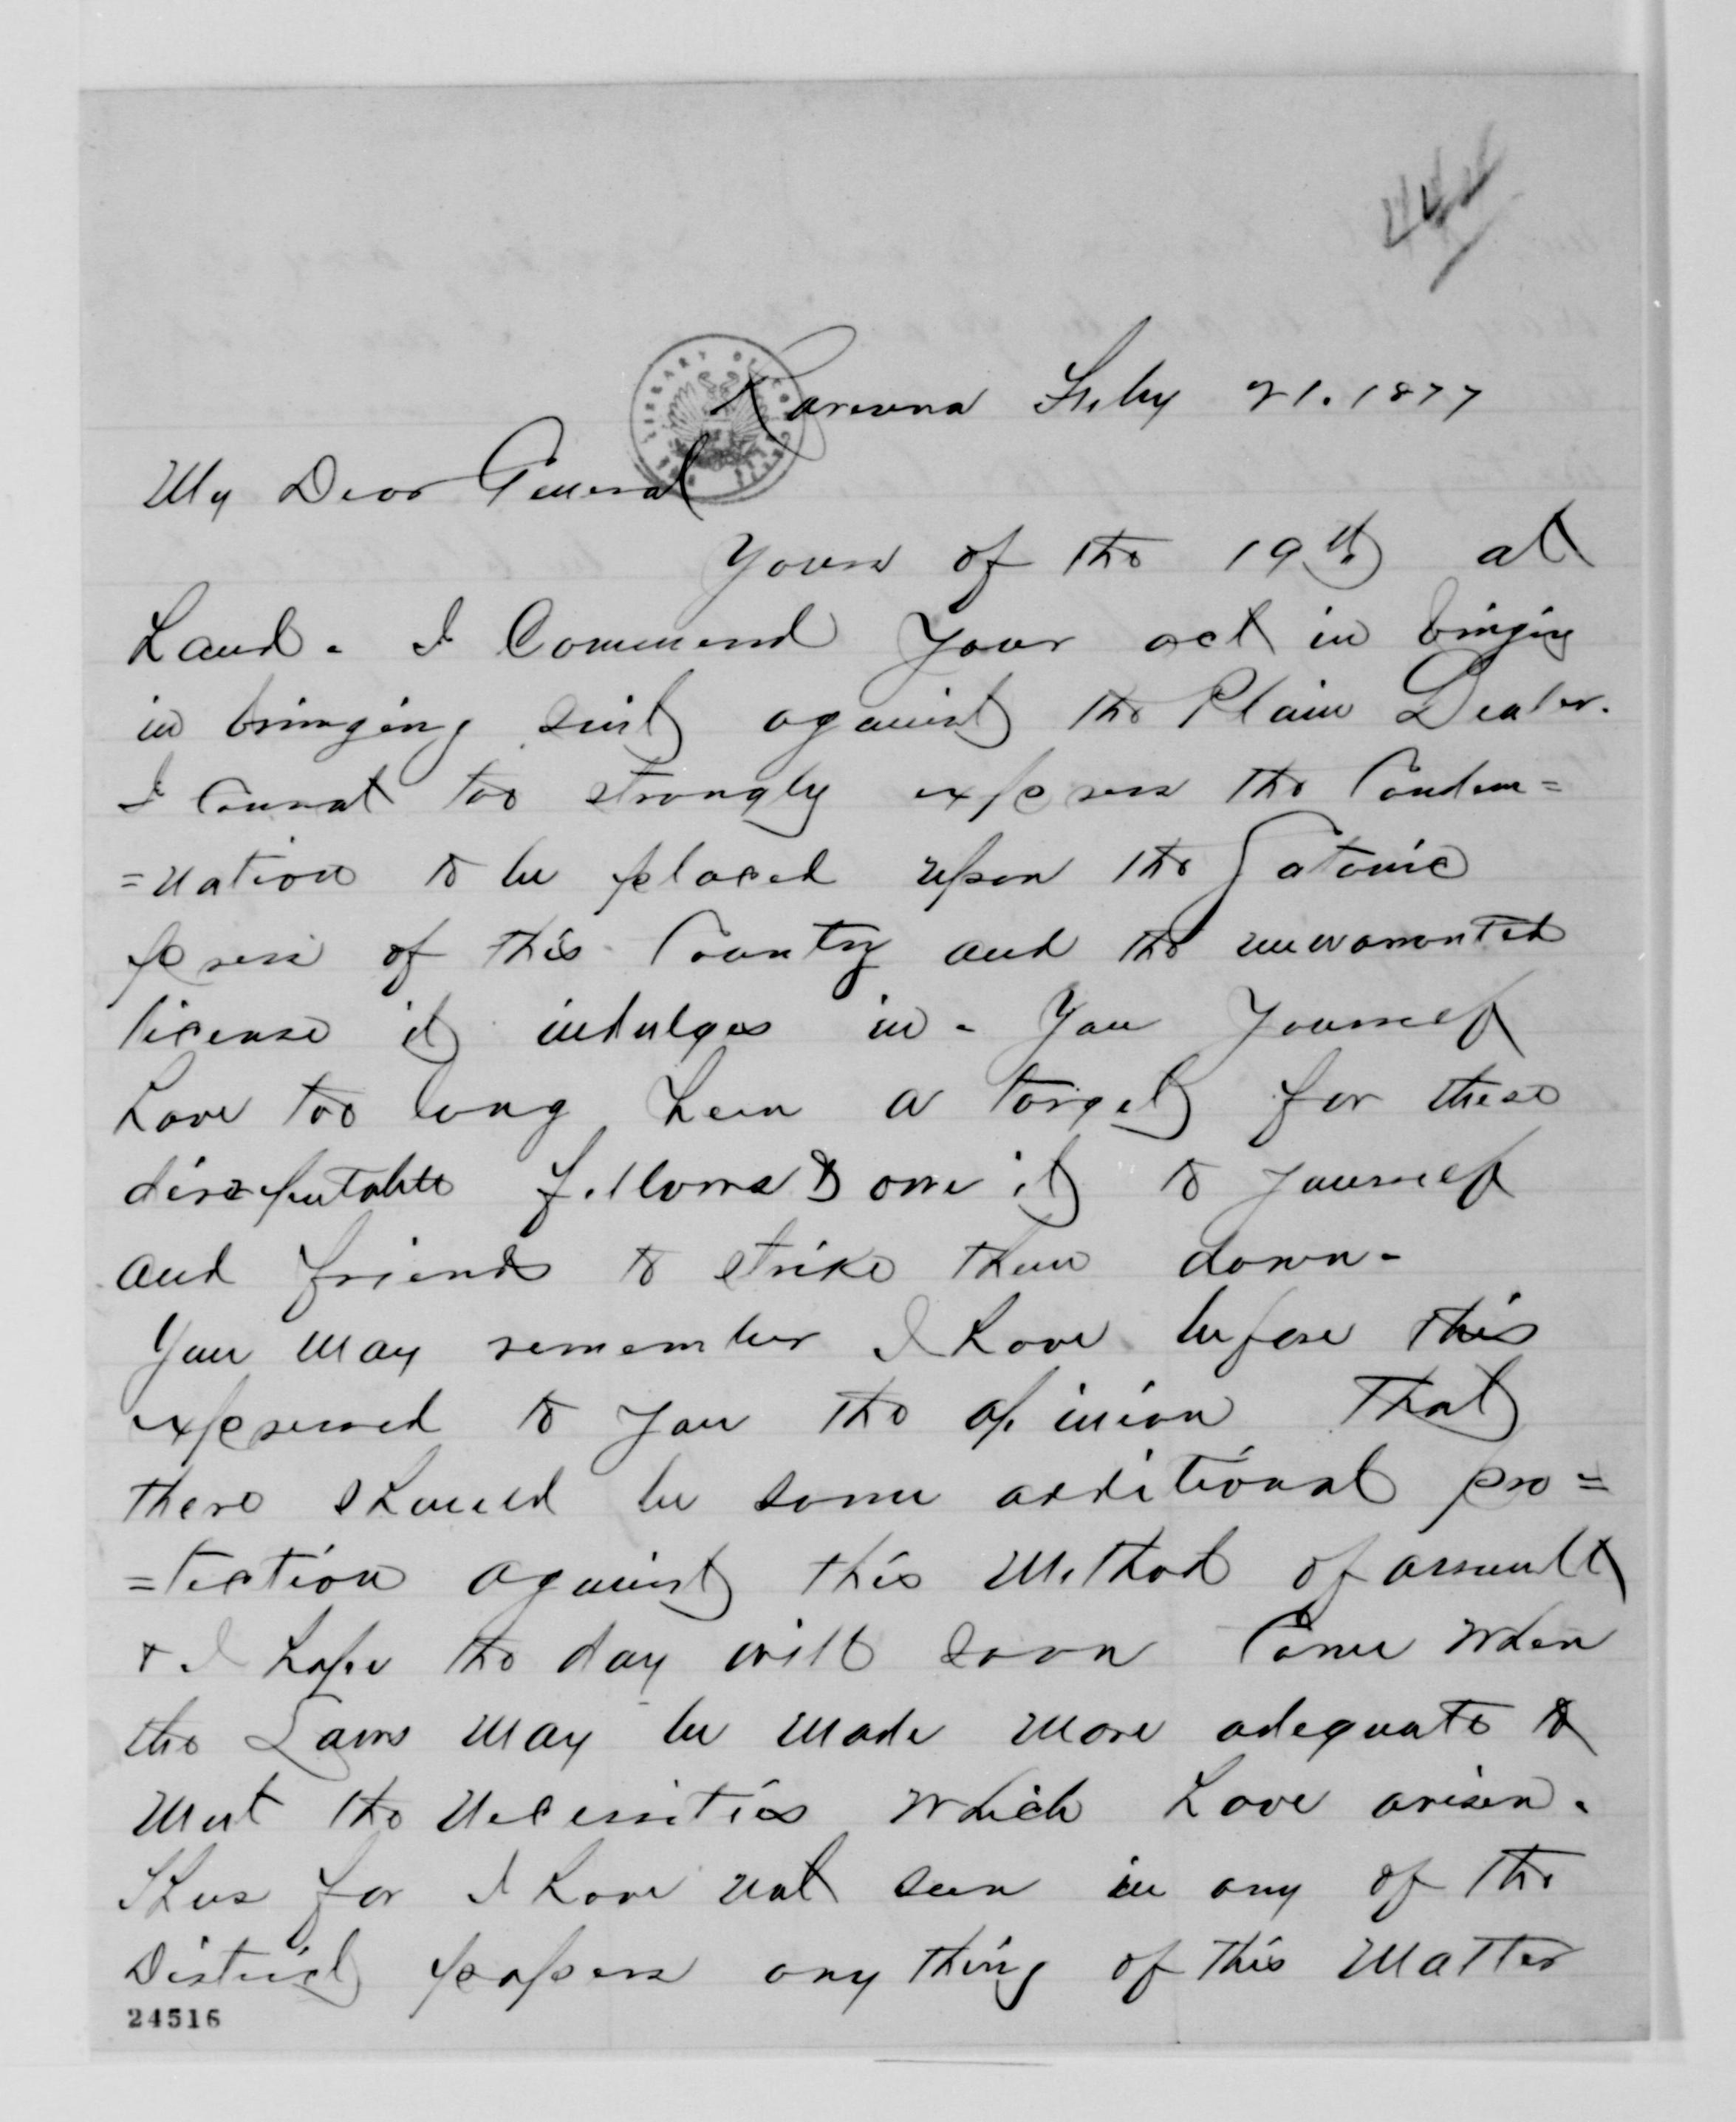 Ravenna Feby 21. 1877
My Dear General
Yours of the 19th at
hand. I Commend your act in bringing
in bringing suit against the Plain Dealer.
I Cannot too strongly express the Condem=
=nation to be placed upon the Satanic
press of this Country and the unwarranted
license it indulges in - You Yourself
have too long been a target for these
disreputable fellows & owe it to yourself
and friends to strike them down -
You may remember I have before this
expressed to you the opinion that
there should be some additional pro=
=tection against this Method of assault
& I hope the day will soon Come when
the Laws may be made more adequate to
meet the necessities which have arisen.
Thus far I have not seen in any of the
District papers any thing of this Matter
24516